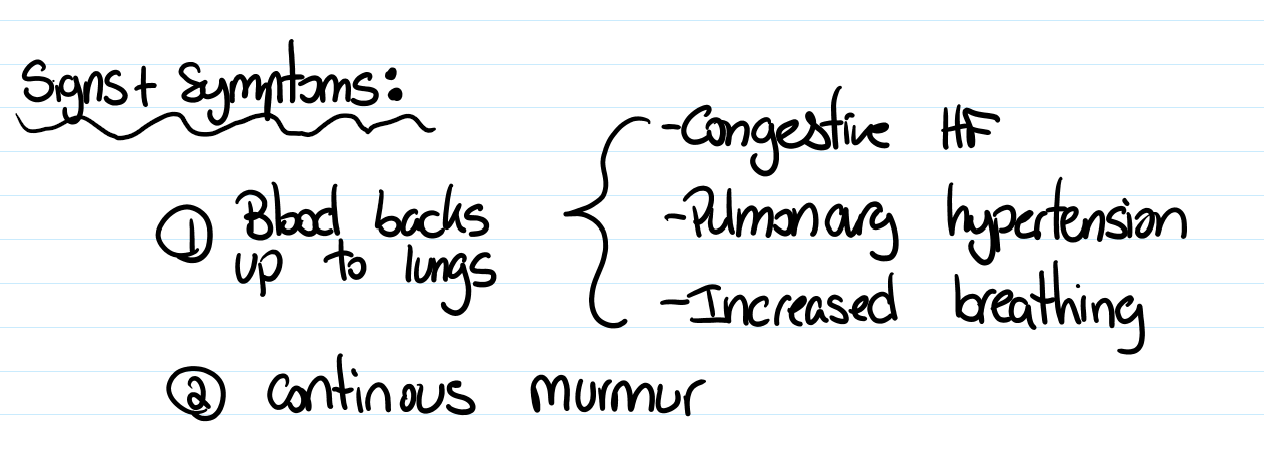 Signs + Symptoms:
① Blood backs
up to lungs
-Congestive HF
-Pulmonary hypertension
-Increased breathing
② continous murmur